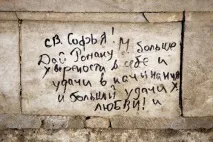 св. Софья!
Дай Роману больше
уверености в себе и
удачи в начинаниях
и большей удачи
в любви! и